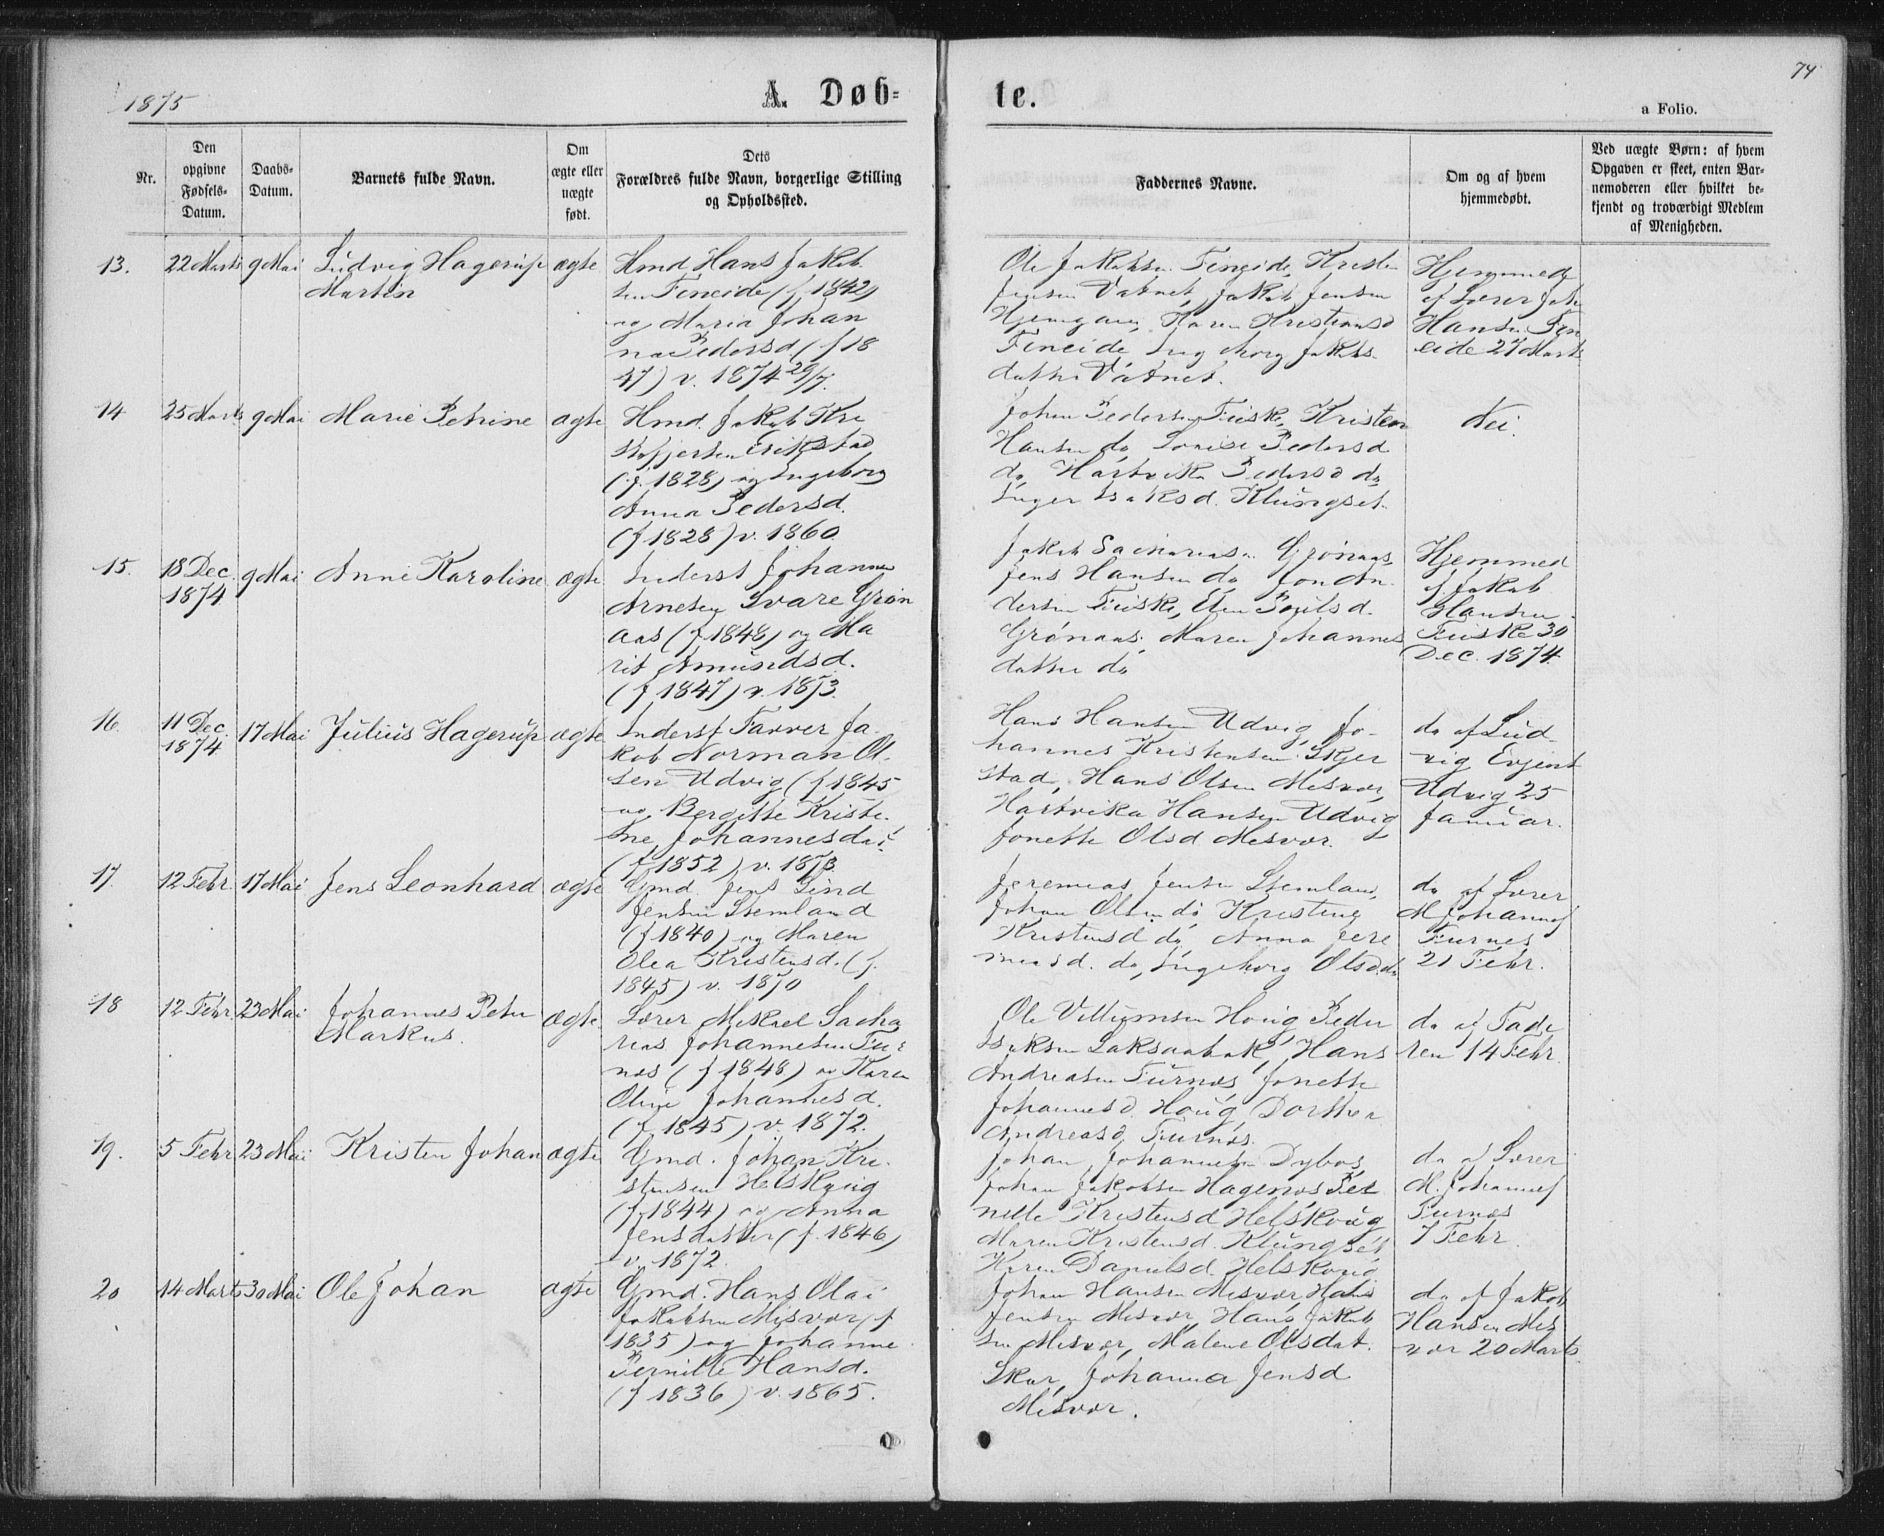 1875
A. Døb=
te.
74
a Folio.
Nr.
Den
opgivne
Fødsels-
Datum.
Daabs-
Datum.
Barnets fulde Navn.
Om
ægte eller
uægte
født.
Dets
Forældres fulde Navn, borgerlige Stilling
og Opholdssted.
Faddernes Navne.
Om og af hvem
hjemmedøbt.
Ved uægte Børn: af hvem
Opgaven er skeet, enten Bar-
nemoderen eller hvilket be-
kjendt og troværdigt Medlem
af Menigheden.
13.
22 Marts
9 Mai
Ludvig Hagerup
Martin
ægte
Hmd. Hans Jakob
sen Fineide (f 1842)
og Maria Johan
na Pedersd (f 18
47) v. 1874 29/7.
Ole Jakobsen Fineide, Kristen
Jensen Vatnet, Jakob Jensen
Karen Kristiansd
Fineide, Ingeborg Jakobs-
datter Vatnet.
Hjemmedø
af Lærer Joh
Hansen Fin
eide 27 Marts
14
25 Marts
9 Mai
Marie Petrine
ægte
Hmd. Jakob Kri
stofersen Erikstad
(f. 1828) og Ingeborg
Anna Pedersd.
(f 1828) v. 1860
Johan Pedersen Fuiske, Kristen
Hansen do, Lovise Pedersd
do Hartvika Pedersd do
Inger Isaksd. Klungset
Nei.
15.
18 Dec.
1874
9 Mai
Anne Karoline
ægte
Inderst Johannes
Arnesen Svare Grøn
aas (f 1848) og Ma
rit Amundsd.
(f 1847) v. 1873.
Jakob Sakariasn Grønaas
Jens Hansen do, Jon An
dersen Fuiske, Elen Povelsd.
Grønaas, Maren Johannes
datter do
Hjemmed
af Jakob
Hansen
Fuiske 30
Dec. 1874
16.
11 Dec.
1874
17 Mai
Julius Hagerup
ægte
Inderst Farver Ja-
kob Norman Ol-
sen Udvig (f 1845
og Bergitte Kristi-
ne Johannesda:
(f 1852) v. 1873.
Hans Hansen Udvig, Jo-
hannes Kristensen Skjer
stad, Hans Olsen Mesvær,
Hartvika Hansen Udvig
Jonette Olsd Mesvær.
do af Lud-
vig Evjent
Udvig 25
Januar.
17.
12 Febr.
17 Mai
Jens Leonhard
ægte
Gmd. Jens Lind
Jensen Stemland
(f 1840) og Maren
Olea Kristensd. (f.
1845) v. 1870
Jeremias Jensen Stemland,
Johan Olsen do Kristine
Kristensd do, Anna Jere
miasd. do, Ingeborg Olsd. do
do af Lærer
M. Johannes
Furnes
21 Febr.
18
12 Febr
23 Mai
Johannes Peter
Markus.
ægte
Lærer Mekael Sacha
rias Johannesen Fur
næs (f 1848) og Karen
Oline Johannesd.
(f. 1845) v. 1872.
Ole Villumsen Houg, Peder
Isaksen Laksaabak, Hans
Andreasen Furnæs, Jonette
Johannesd. Houg, Dorthea
Andreasd. Furnæs.
do af Fade
ren 14 Febr.
19.
5 Febr
23 Mai
Kristen Johan
ægte
Gmd. Johan Kri-
stensen Helskoug
(f. 1844) og Anna
Jensdatter (f. 1846)
v. 1872.
Johan Johannesn Dybos,
Johan Jakobsen Hagenæs, Per
nelle Kristensd Helskoug
Maren Kristensd. Klungset
Karen Danielsd. Helskoug
do af Lærer
M. Johannes
Furnæs
7 Febr.
20
14 Marts
30 Mai
Ole Johan
ægte
Gmd. Hans Olai
Jakobsen Misvær (f
1835) og Johanne
Pernille Hansd.
(f 1836) v. 1865.
Johan Hansen Misvær, Hans
Jensen Misvær, Hans Jakob
sen Misvær, Malene Olsdat.
Skar, Johanna Jensd
Misvær.
do af Jakob
Hansen Mis
vær 20 Marts.